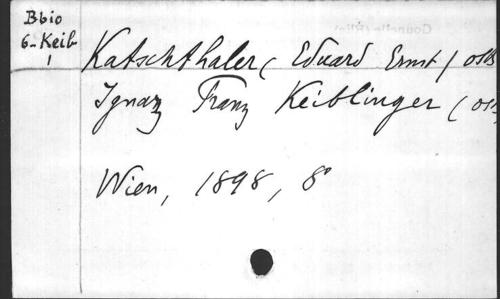 Bbio
6-Keib-
1
Katschthaler ( Eduard Ernst ) OSB
Ignaz Franz Keiblinger ( OSB
Wien, 1898, 8°